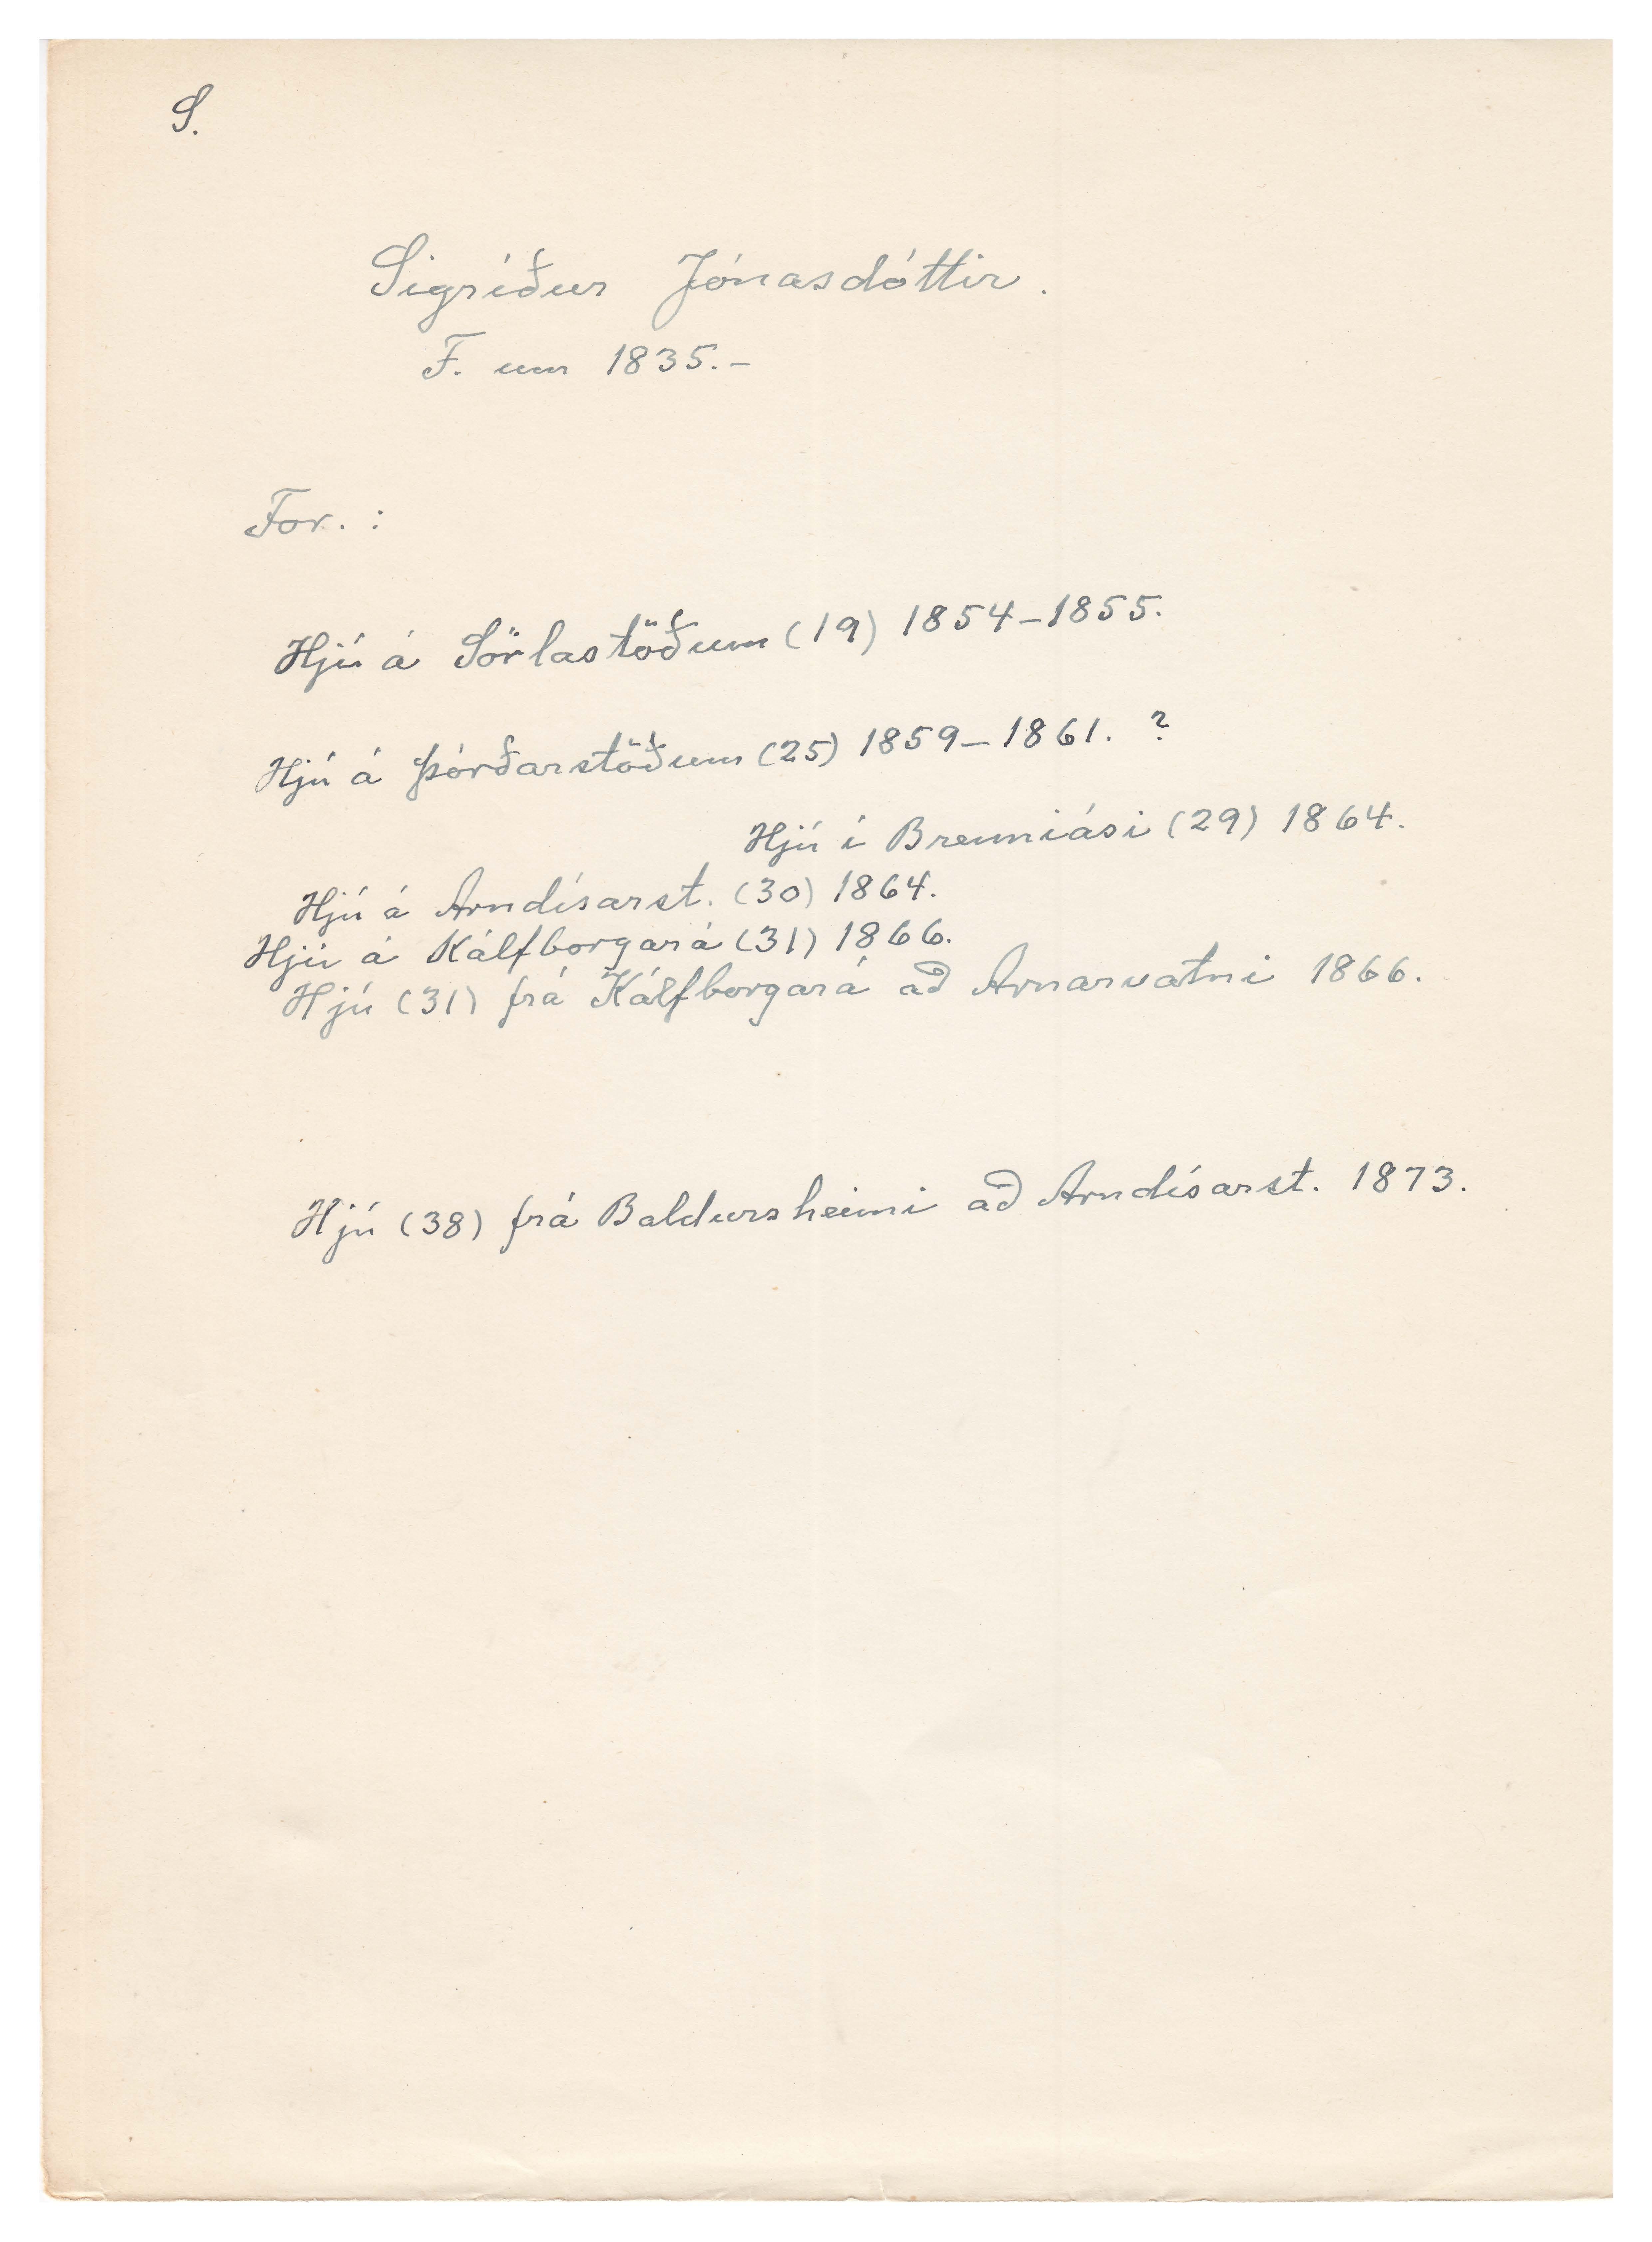 S.
Sigríður Jónasdóttir.
F. um 1835.-
For. :
Hjú á Sörlastöðum (19) 1854-1855.
Hjú á Þórðarstöðum (25) 1859-1861. ?
Hjú í Brenniási (29) 1864.
Hjú á Arndísarst. (30) 1864.
Hjú á Kálfborgará (31) 1866.
Hjú (31) frá Kálfborgará að Arnarvatni 1866.
Hjú (38) frá Baldursheimi að Arndísarst. 1873.